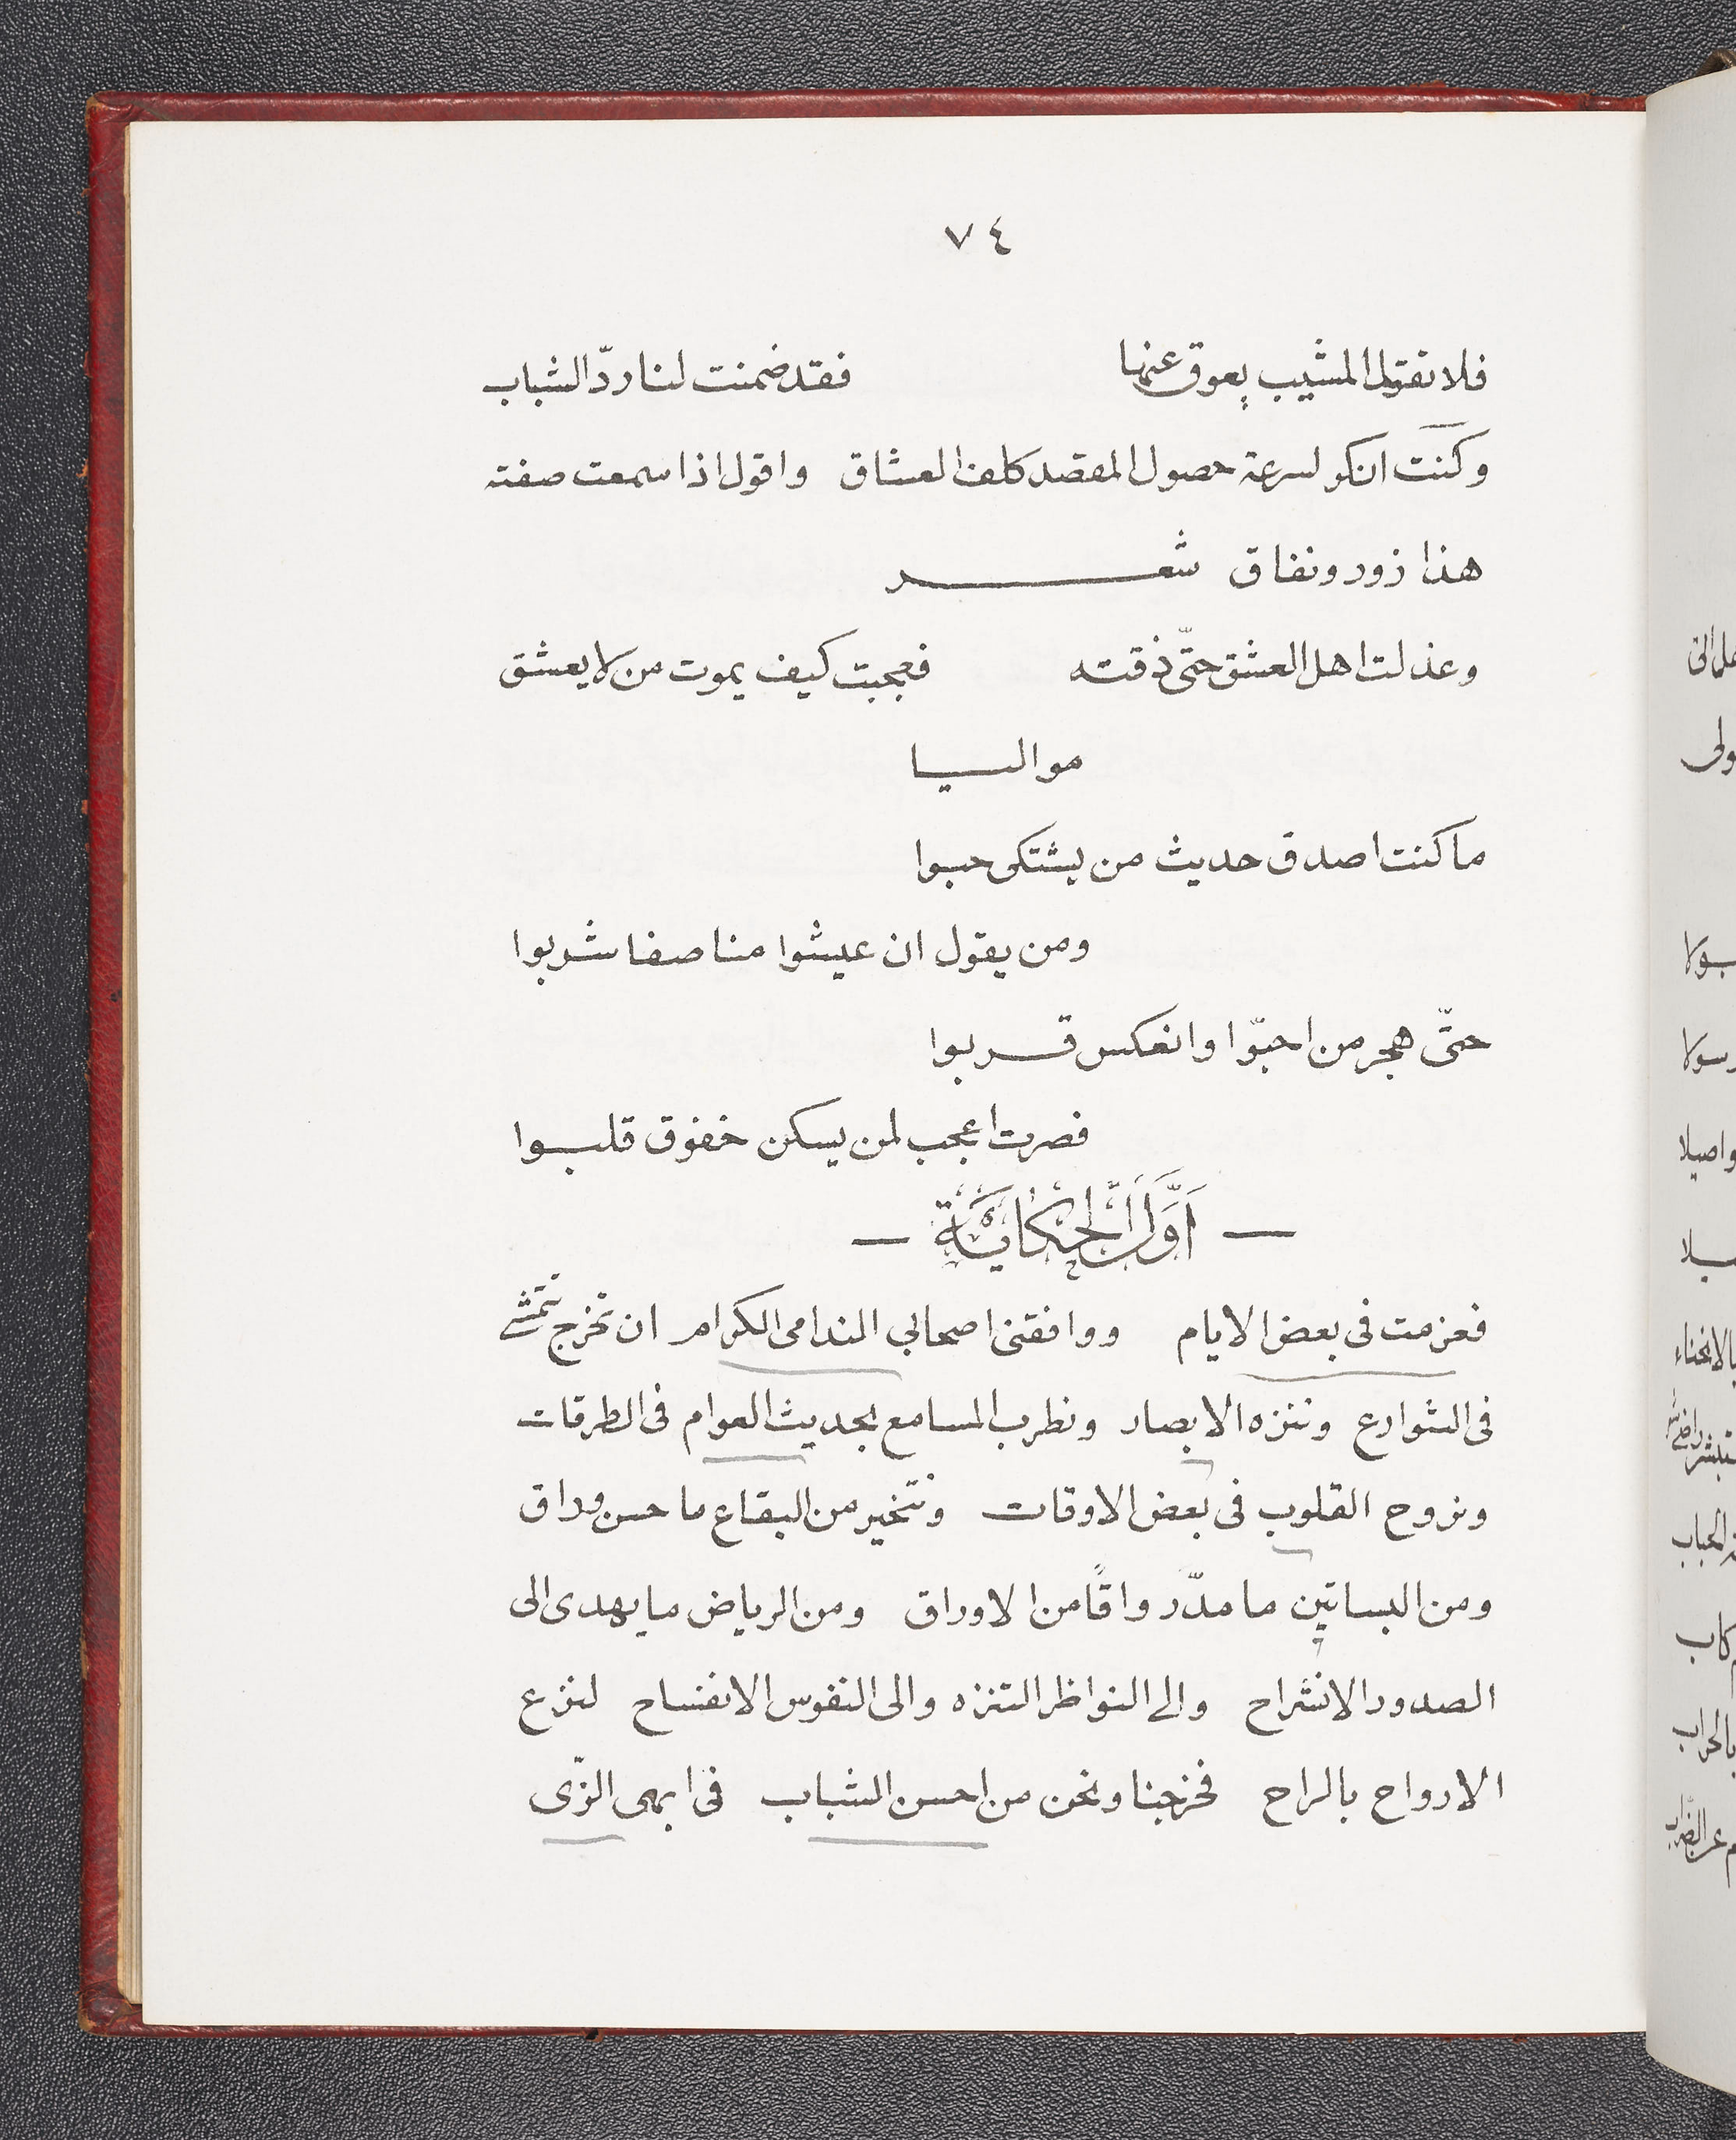 ٧٤
فلا تقول المشيب يعوق عنها فقد ضمنت لنا ردّ الشباب
وكنت انكر لسرعة حصول المقصد كلف العشاق واقول اذا سمعت صفته
هذا زور ونفاق شعر
وعذلت اهل العشق حتّى ذقته فعجبت كيف يموت من لا يعشق
مواليا
ما كنت اصدق حديث من يشتكى حبوا
ومن يقول ان عيشوا منا صفا شربوا
حتّى هجر من احبّوا وانعكس قربوا
فصرت اعجب لمن يسكن خفوق قلبوا
— اَوَّلُ الْحِكَايَةِ —
فعزمت فى بعض الايام ووافقنى اصحابى الندامى الكرام ان نخرج نتمشى
فى الشوارع وننزه الابصار ونطرب المسامع بحديث العوام فى الطرقات
ونروح القلوب فى بعض الاوقات ونتخير من البقاع ما حسن وراق
ومن البساتين ما مدّ رواقًا من الاوراق ومن الرياض ما يهدى الى
الصدور الانشراح والى النواظر التنزه والى النفوس الانفساح لنزع
الارواح بالراح فخرجنا ونحن من احسن الشباب فى ابهى الزّى